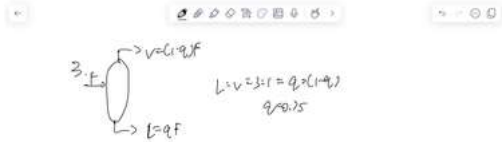 V=(1-q)F
3. F
L=qF
L:V=3:1=q:(1-q)
q=0.75